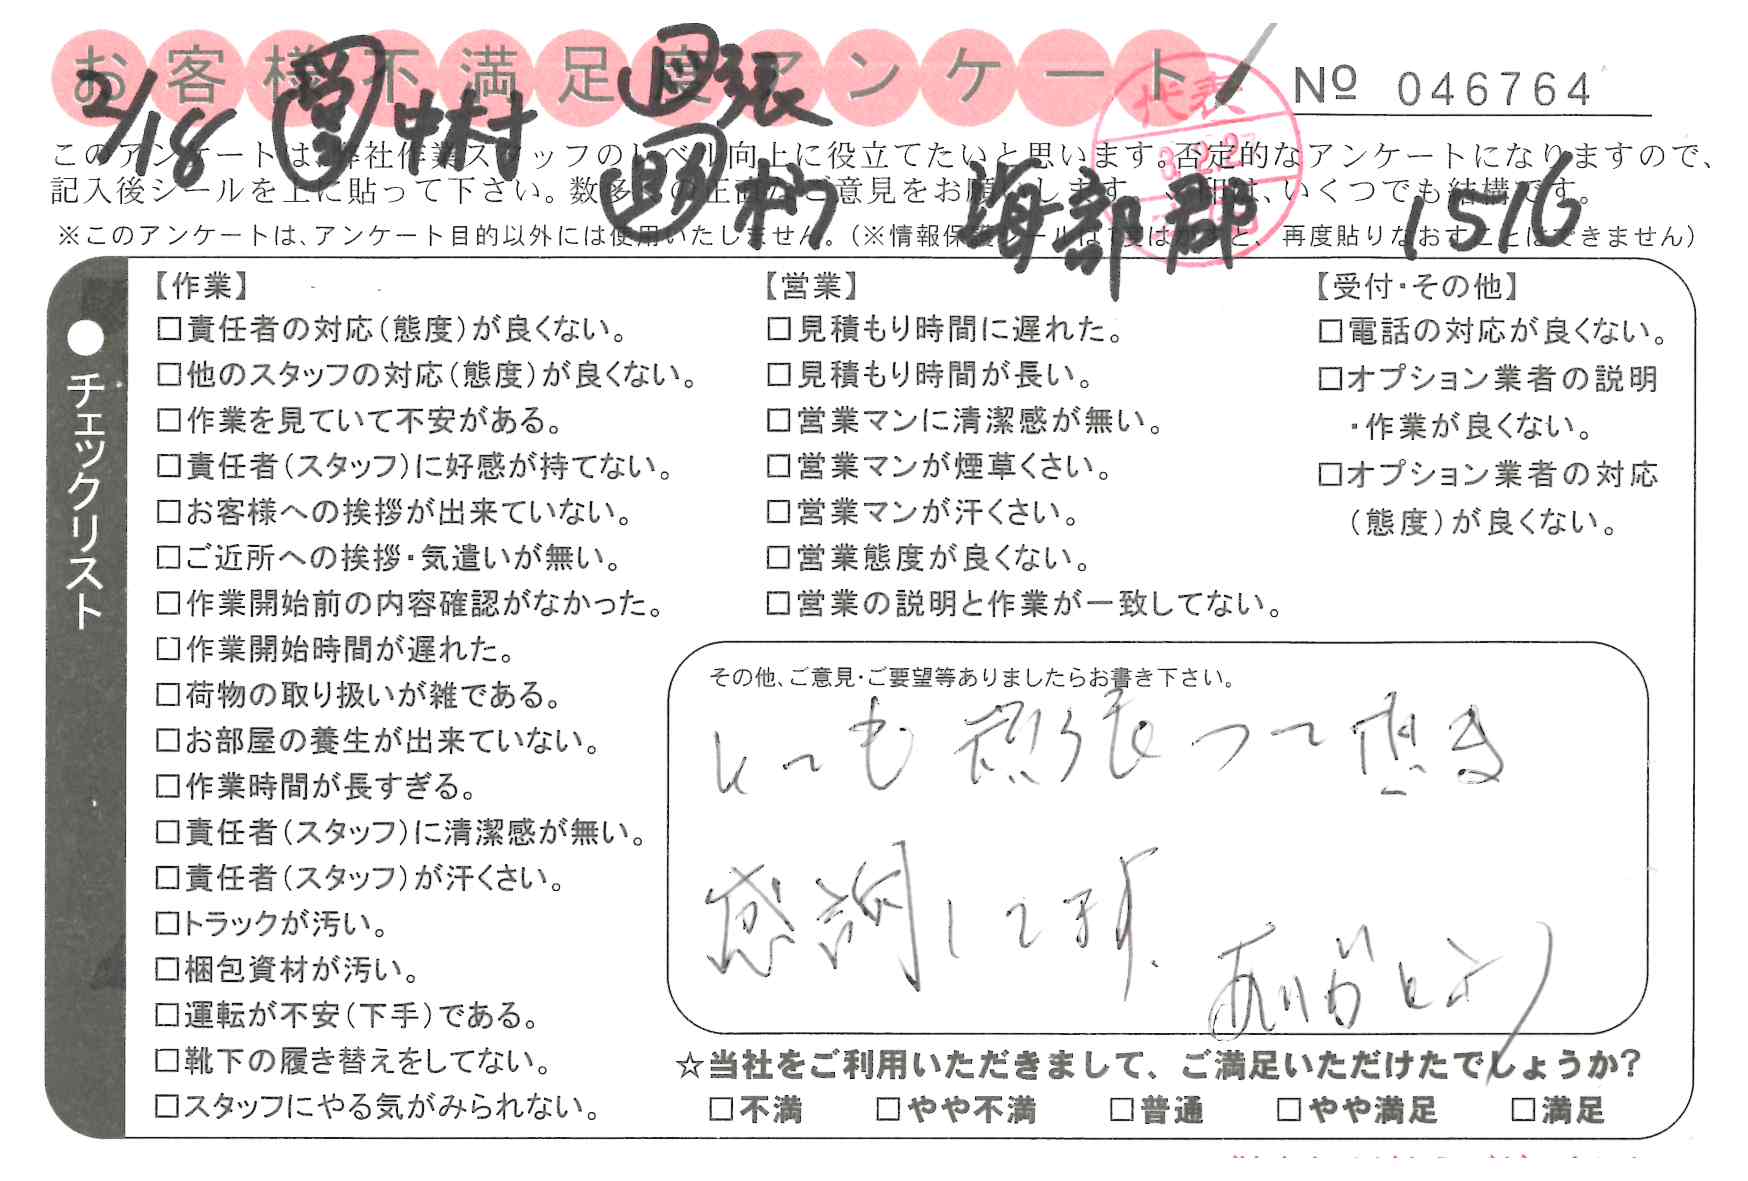 お客様不満足度アンケート
No 046764
2/18 営 中村
張
村 海部郡 1516
代表
このアンケートは、弊社作業スタッフのレベル向上に役立てたいと思います。否定的なアンケートになりますので、
記入後シールを上に貼って下さい。数多くの正直なご意見をお願いします。
は、いくつでも結構です。
※このアンケートは、アンケート目的以外には使用いたしません。(※情報保護シールは1度はがすと、再度貼りなおすことはできません)
●チェックリスト
【作業】
□責任者の対応(態度)が良くない。
□他のスタッフの対応(態度)が良くない。
□作業を見ていて不安がある。
□責任者(スタッフ)に好感が持てない。
□お客様への挨拶が出来ていない。
□ご近所への挨拶・気遣いが無い。
□作業開始前の内容確認がなかった。
□作業開始時間が遅れた。
□荷物の取り扱いが雑である。
□お部屋の養生が出来ていない。
□作業時間が長すぎる。
□責任者(スタッフ)に清潔感が無い。
□責任者(スタッフ)が汗くさい。
□トラックが汚い。
□梱包資材が汚い。
□運転が不安(下手)である。
□靴下の履き替えをしてない。
□スタッフにやる気がみられない。
【営業】
□見積もり時間に遅れた。
□見積もり時間が長い。
□営業マンに清潔感が無い。
□営業マンが煙草くさい。
□営業マンが汗くさい。
□営業態度が良くない。
□営業の説明と作業が一致してない。
【受付・その他】
□電話の対応が良くない。
□オプション業者の説明
・作業が良くない。
□オプション業者の対応
(態度)が良くない。
その他、ご意見・ご要望等ありましたらお書き下さい。
とても頑張って
感謝してます.
ありがとう
☆当社をご利用いただきまして、ご満足いただけたでしょうか?
□不満 □やや不満 □普通 □やや満足 □満足